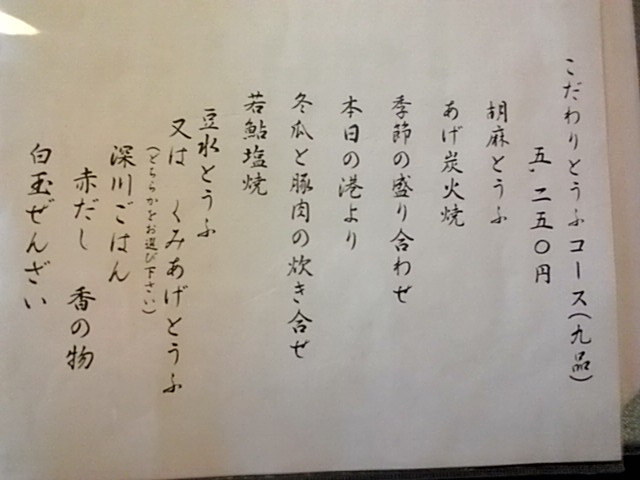 こだわりとうふコース(九品)
五、二五〇円
胡麻とうふ
あげ炭火焼
季節の盛り合わせ
本日の港より
冬瓜と豚肉の炊き合せ
若鮎塩焼
豆水とうふ
又は くみあげとうふ
(どちらかをお選び下さい)
深川ごはん
赤だし 香の物
白玉ぜんざい